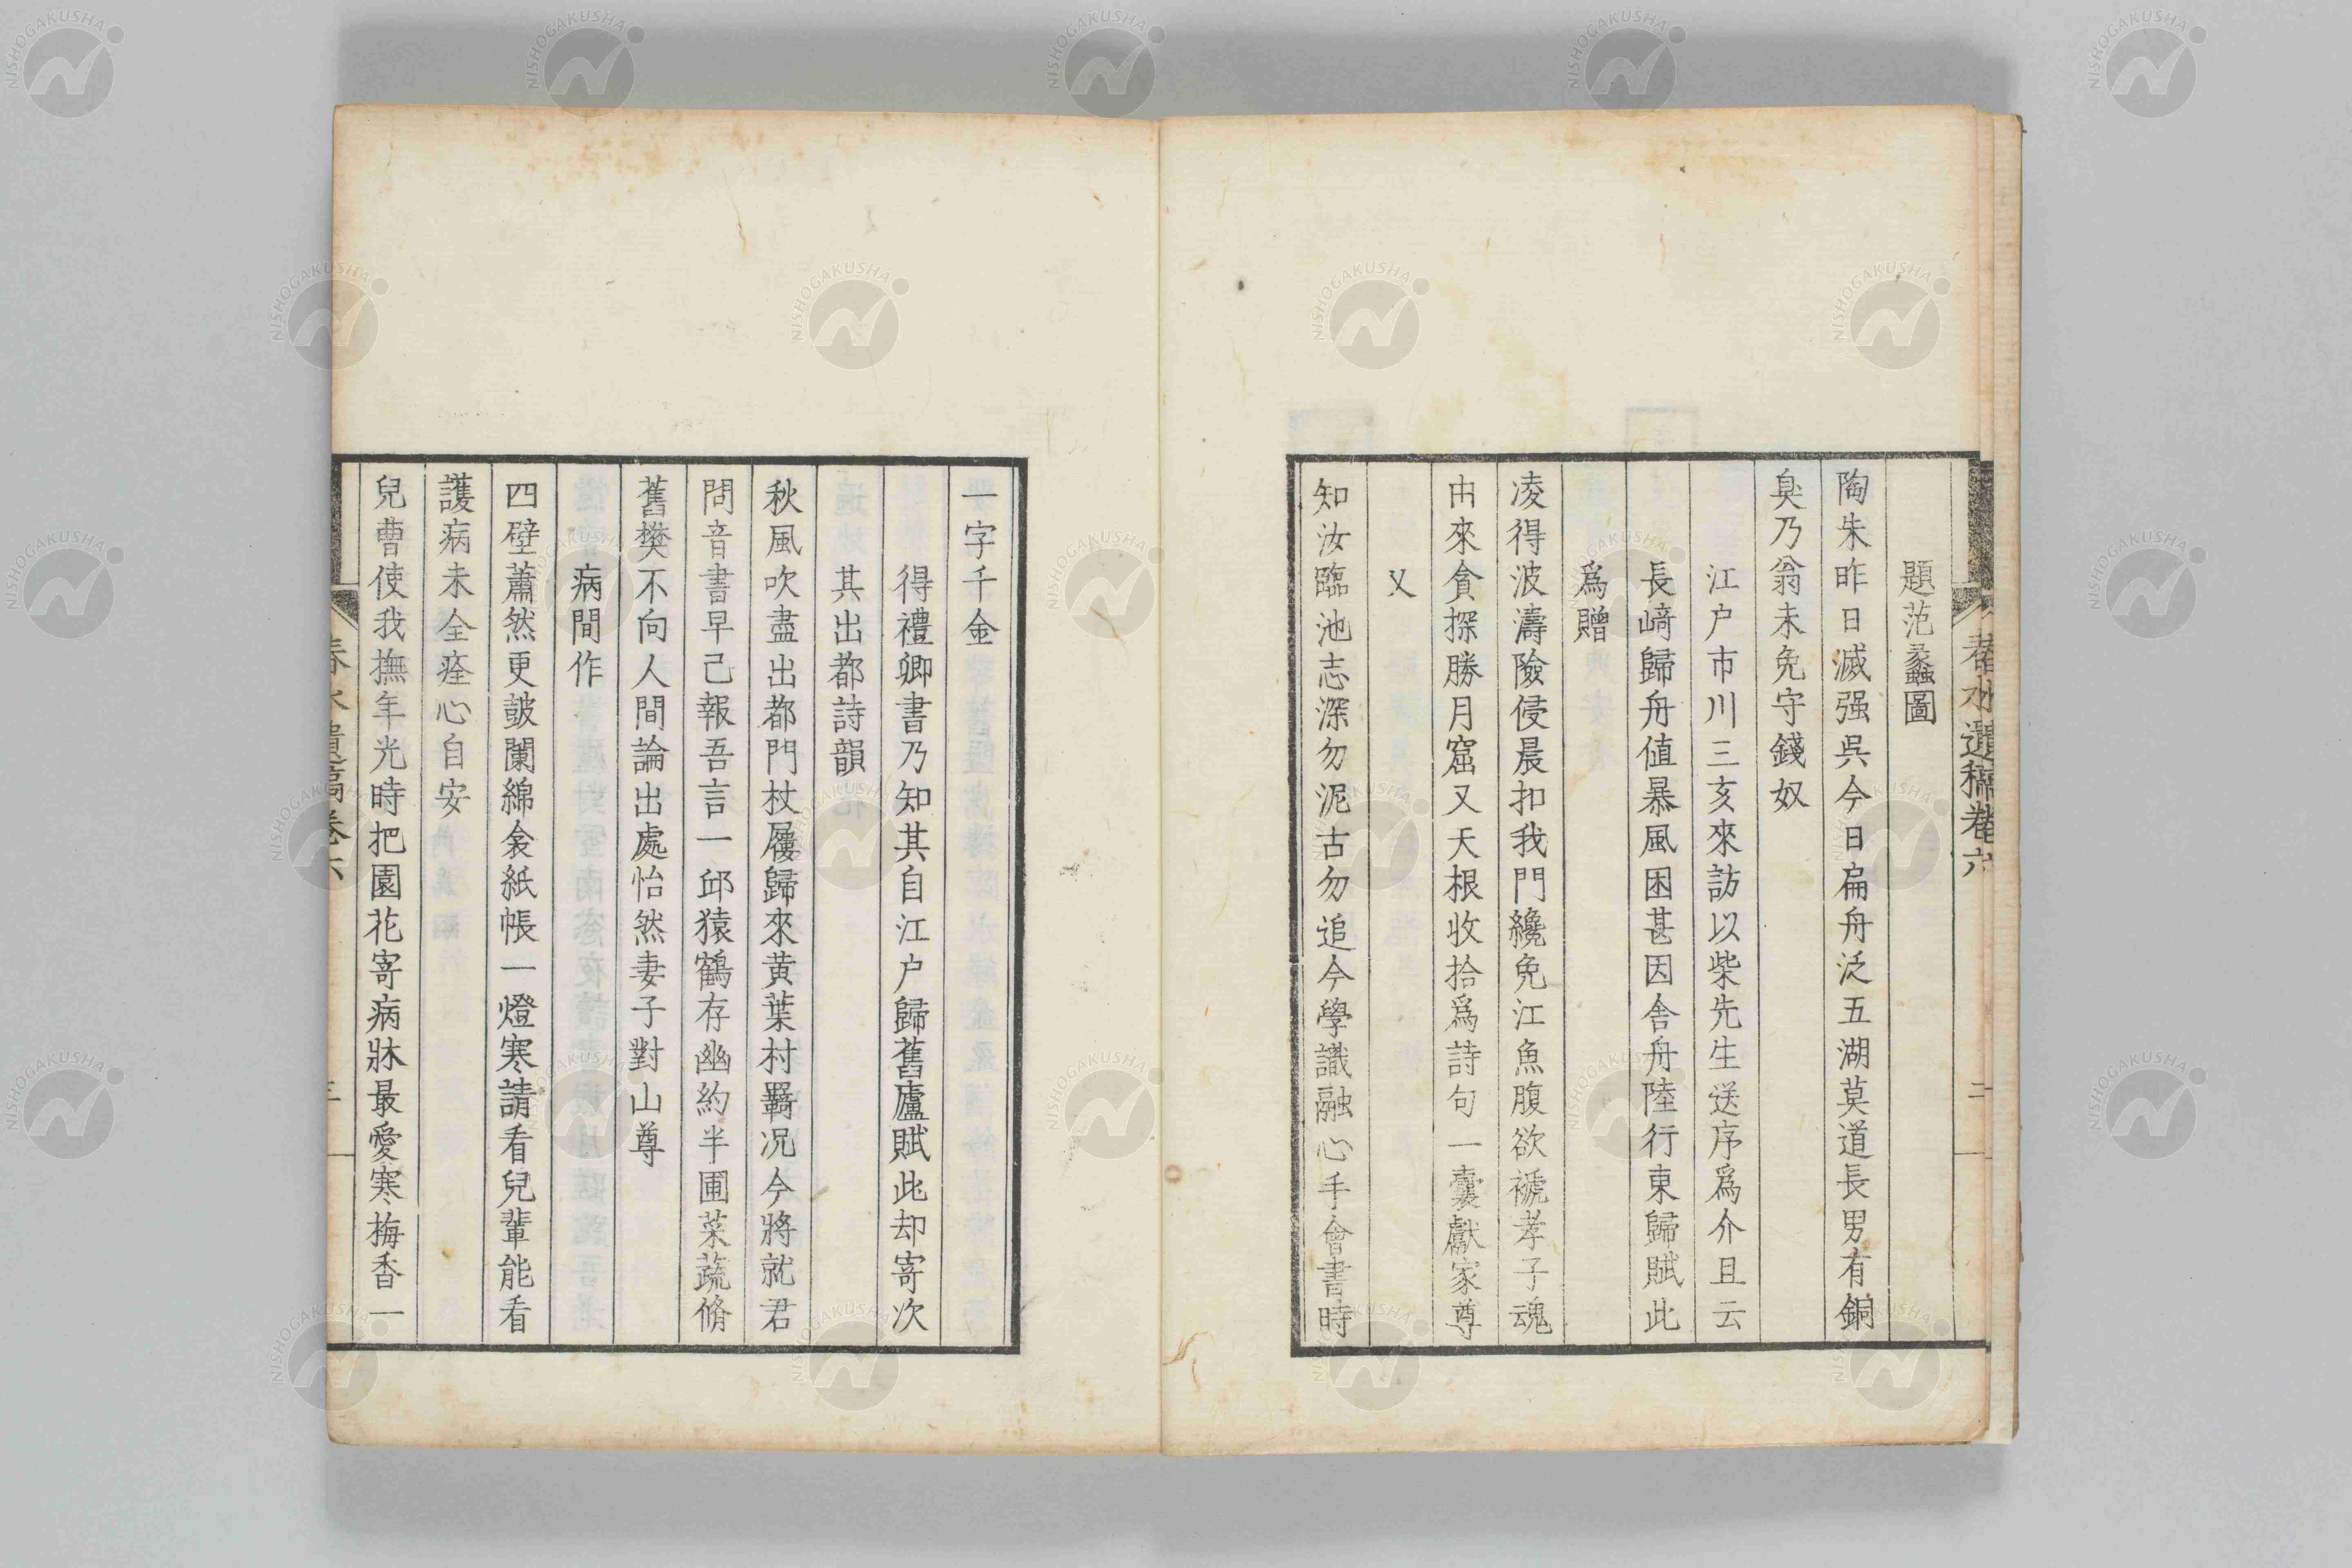 春水遺稿卷六
二
題范蠡圖
陶朱昨日滅强呉今日扁舟泛五湖莫道長男有銅
臭乃翁未免守錢奴
江户市川三亥來訪以柴先生送序爲介且云
長﨑歸舟值暴風困甚因舍舟陸行東歸賦此
爲贈
凌得波濤險侵晨扣我門纔免江魚腹欲褫孝子魂
由來貪探勝月窟又天根收拾爲詩句一囊獻家尊
又
知汝臨池志深勿泥古勿追今學識融心手會書時
一字千金
得禮卿書乃知其自江户歸舊廬賦此却寄次
其出都詩韻
秋風吹盡出都門杖屨歸來黄葉村羇况今將就君
問音書早已報吾言一邱猿鶴存幽約半圃菜蔬脩
舊樊不向人間論出處怡然妻子對山尊
病間作
四壁蕭然更皷闌綿衾紙帳一燈寒請看兒輩能看
護病未全痊心自安
兒曹使我撫年光時把園花寄病牀最愛寒梅香一
春水遺稿卷六
三
NISHOGAKUSHA